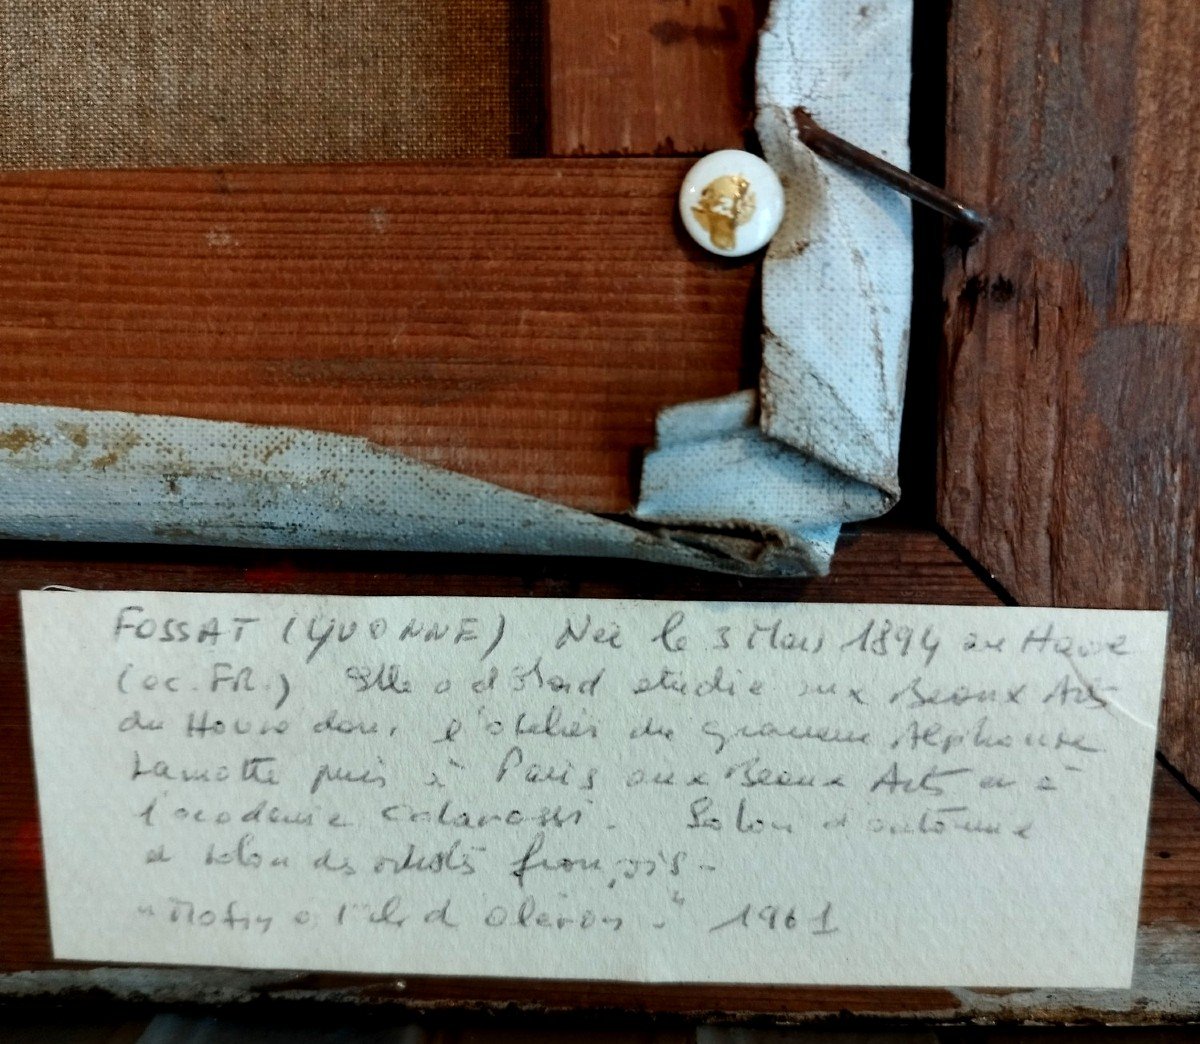 FOSSAT (YVONNE) Née le 3 Mars 1894 au Havre
(éc. FR.) Elle a d'abord étudié aux Beaux Arts
du Havre dans l'atelier du graveur Alphonse
Lamotte puis à Paris aux Beaux Arts et à
l'académie Colarossi. Salon d'automne
et salon des artistes français -
" à l'ile d'oléron." 1961